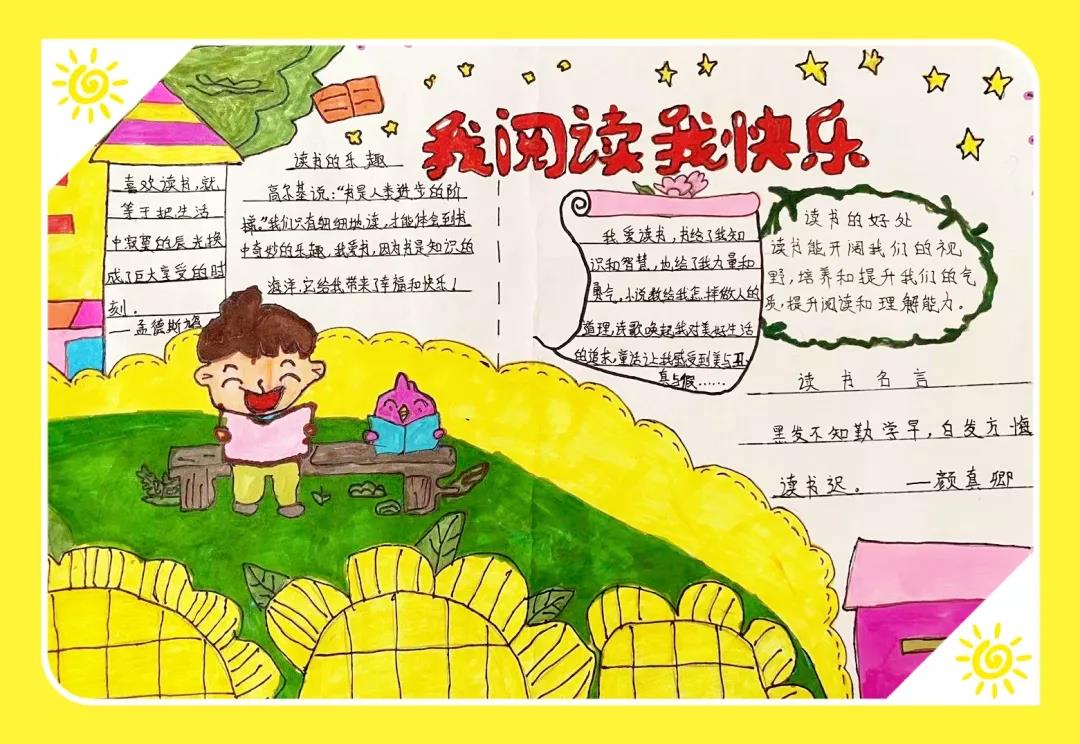 我阅读我快乐
喜欢读书,就
等于把生活
中寂寞的辰光换
成了巨大享受的时
刻.
—孟德斯鸠
读书的乐趣
高尔基说:“书是人类进步的阶
梯.”我们只有细细地读,才能体会到书
中奇妙的乐趣,我爱书,因为书是知识的
海洋,它给我带来了幸福和快乐!
我爱读书,书给了我知
识和智慧,也给了我力量和
勇气.小说教给我怎样做人的
道理,诗歌唤起我对美好生活
的追求,童话让我感受到美与丑.
真与假……
读书的好处
读书能开阔我们的视
野,培养和提升我们的气
质,提升阅读和理解能力.
读书名言
黑发不知勤学早,白发方悔
读书迟。 —颜真卿